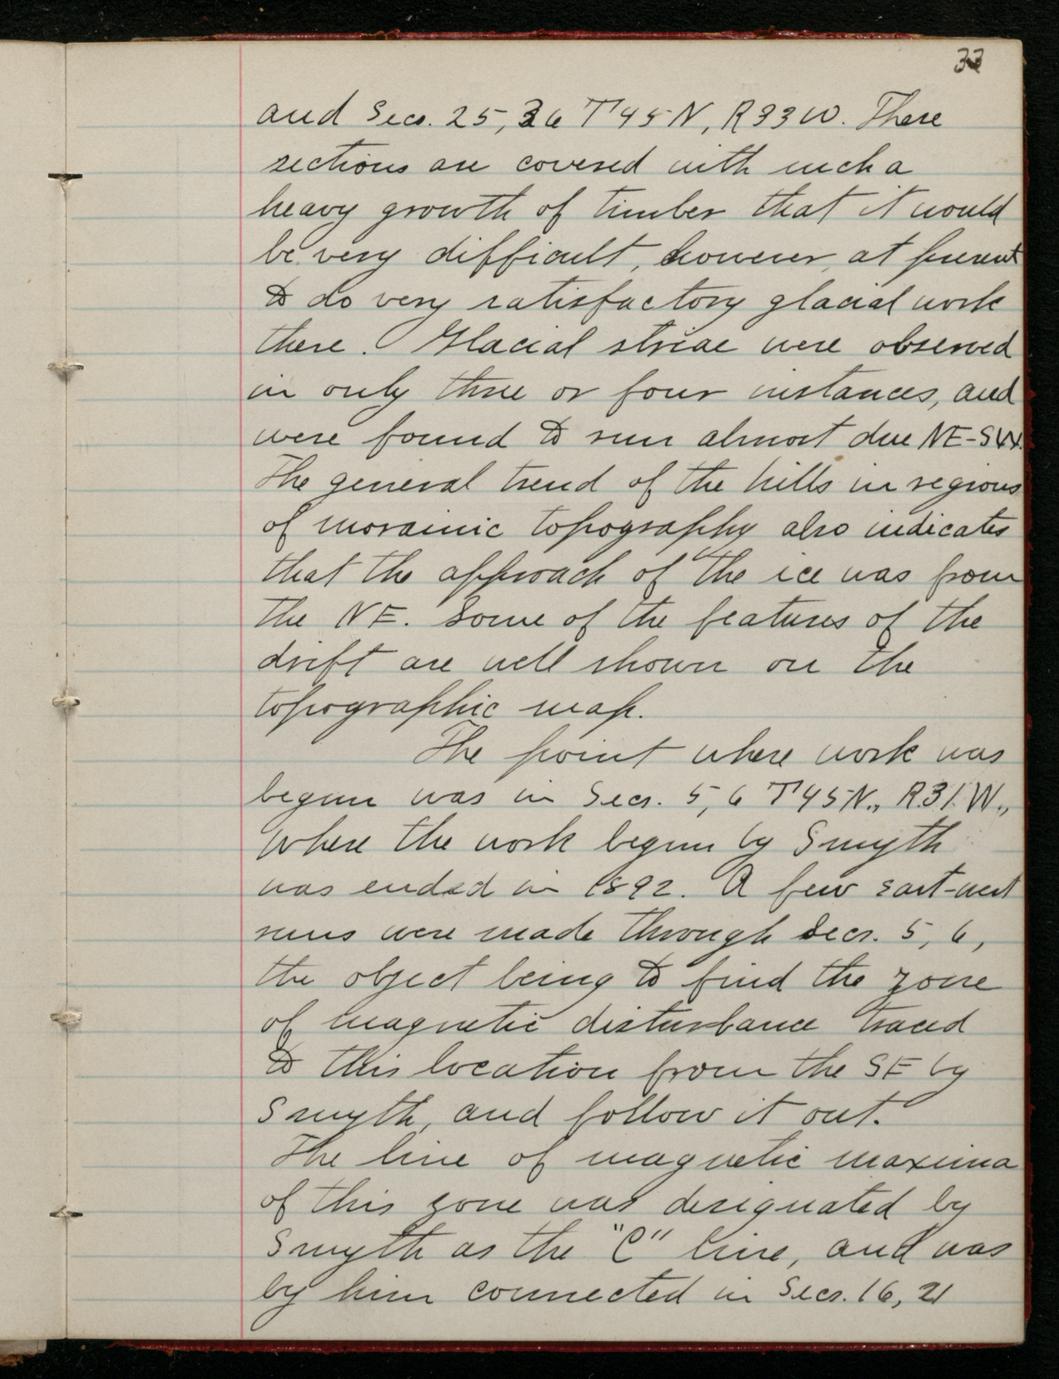 33
and Secs. 25, 36 T45N, R33W. These
sections are covered with such a
heavy growth of timber that it would
be very difficult, however, at present
to do very satisfactory glacial work
there. Glacial striae were observed
in only three or four instances, and
were found to run almost due NE-SW.
The general trend of the hills in regions
of morainic topography also indicates
that the approach of the ice was from
the NE. Some of the features of the
drift are well shown on the
topographic map.
The point where work was
begun was in Secs. 5, 6 T45N., R.31.W.,
where the work begun by Smyth
was ended in 1892. A few east-west
runs were made through Secs. 5, 6,
the object being to find the zone
of magnetic disturbance traced
to this location from the SE by
Smyth, and follow it out.
The line of magnetic maxima
of this zone was designated by
Smyth as the "C" line, and was
by him connected in Secs. 16, 21